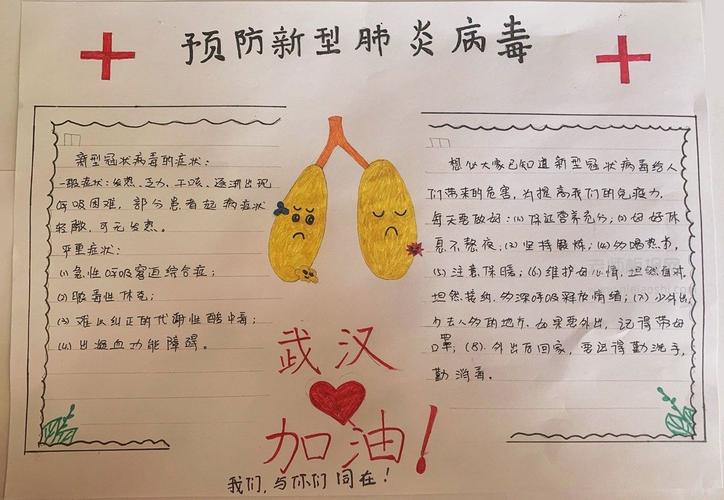 预防新型肺炎病毒
新型冠状病毒的症状:
一般症状:发热、乏力、干咳、逐渐出现
呼吸困难,部分患者起病症状
轻微,可无发热。
严重症状:
(1)急性呼吸窘迫综合症;
(2)脓毒性休克;
(3)难以纠正的代谢性酸中毒;
(4)出凝血功能障碍。
想必大家已知道新型冠状病毒给人
们带来的危害,为提高我们的免疫力,
每天要做好:(1)保证营养充分;(2)好好休
息不熬夜;(3)坚持锻炼;(4)多喝热水,
(5)注意保暖;(6)维护好心情,坦然面对,
坦然接纳,多深呼吸释放情绪;(7)少外出,
少去人多的地方,如果要外出,记得带好
口罩;(8)外出后回家,要记得勤洗手,
勤消毒。
武汉
加油!
我们,与你们同在!